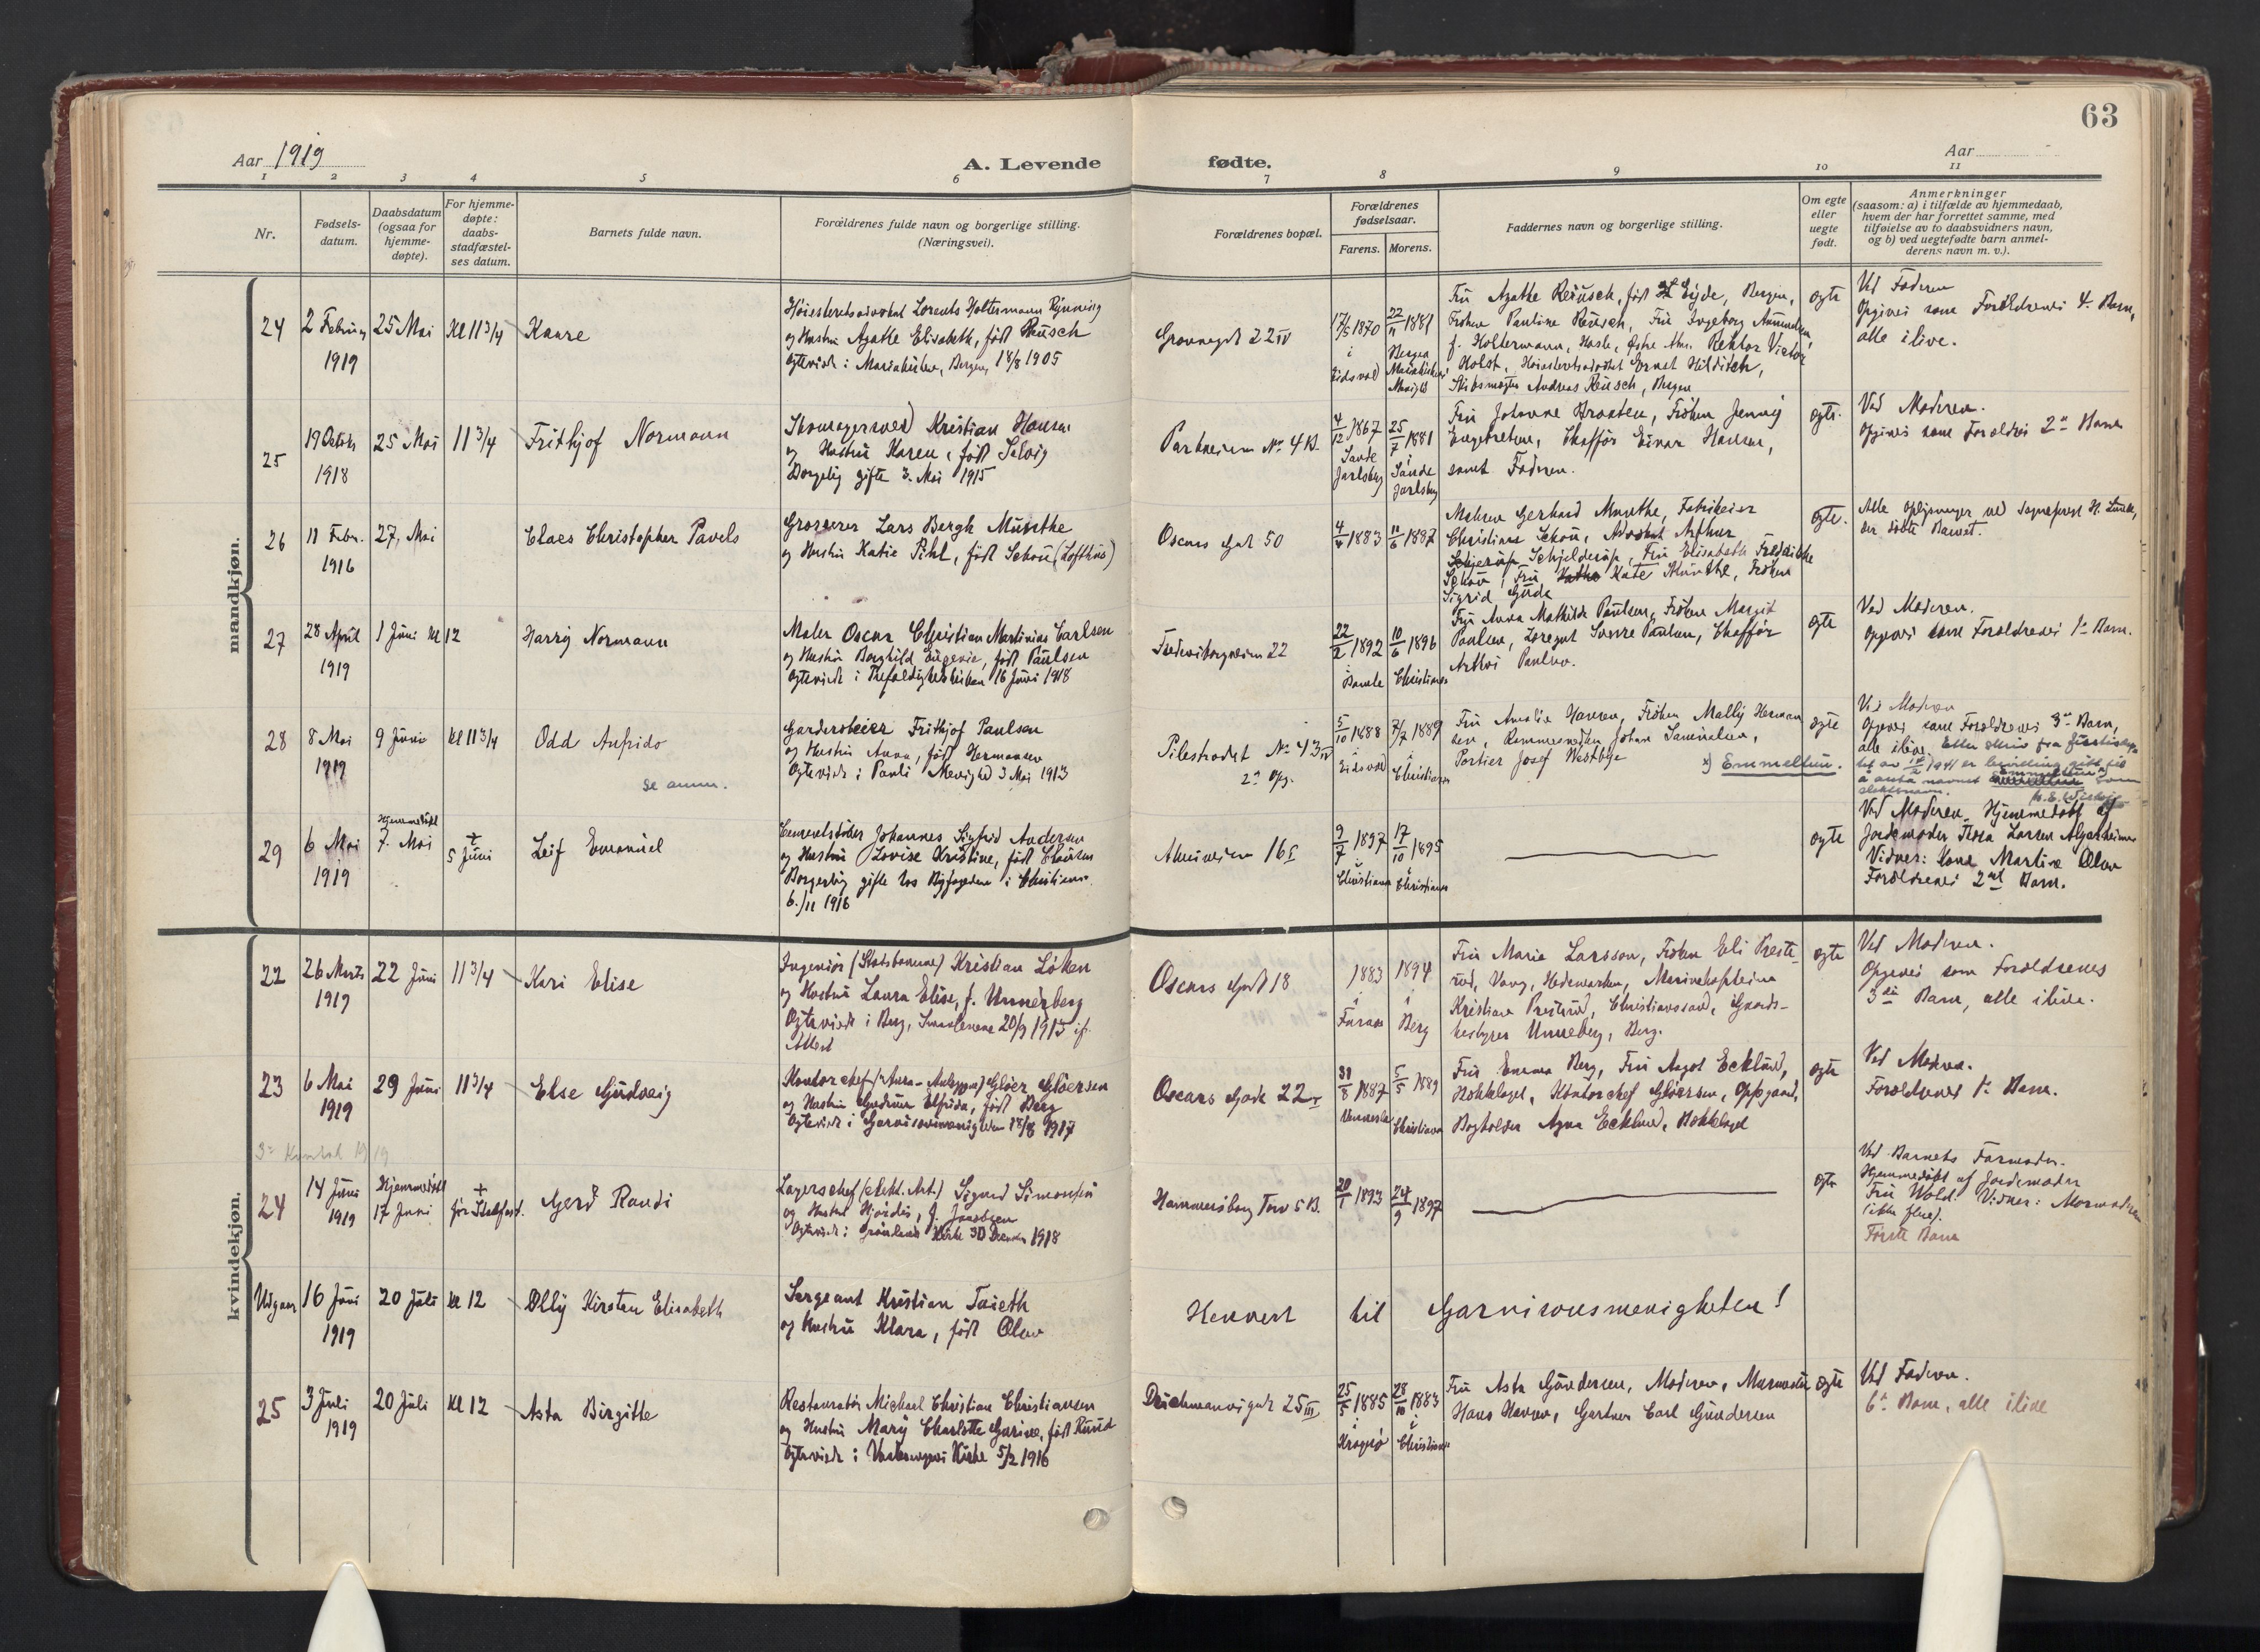 63
Aar 1919
A. Levende fødte.
Aar
1 2 3 4 5 6 7 8 9 10 11
Nr.
Fødsels-
datum.
Daabsdatum
(ogsaa for
hjemme-
døpte).
For hjemme-
døpte:
daabs-
stadfæstel-
ses datum.
Barnets fulde navn.
Forældrenes fulde navn og borgerlige stilling.
(Næringsvei).
Forældrenes bopæl.
Forældrenes
fødselsaar.
Farens. Morens.
Faddernes navn og borgerlige stilling.
Om egte
eller
uegte
født.
Anmerkninger
(saasom: a) i tilfælde av hjemmedaab,
hvem der har forrettet samme, med
tilføielse av to daabsvidners navn,
og b) ved uegtefødte barn anmel-
derens navn m. v.).
mandkjøn.
24
2 Februar
1919
25 Mai
Kl 11 3/4
Kaare
Høiesteretsadvokat Lorents Holtermann Rynning
og Hustru Agathe Elisabeth, født Reusch
Egteviede i Mariakirken, Bergen, 18/8 1905
22 IV
17/5 1870
i
Eidsvold
22/11 1881
Bergen
Fru Agathe Reusch, født Eyde, Bergen,
Frøken Pauline Reusch, Fru Ingeborg
f. Holtermann, Rektor Victor
Holst, Høiesteretsadvokat Ernst Hilditch,
Skibsmægler Andreas Reusch, Bergen
egte
Ved Faderen
Opgives som Forældrenes 4. Barn,
alle ilive.
25
19 Octob
1918
25 Mai
11 3/4
Frithjof Normann
Kristian Hansen
og Hustru Karen, født Selvig
Borgelig gifte 3. Mai 1915
Parkveien No 4 B.
4/12 1867
Sande
Jarlsberg
25/7 1881
i
Sande
Jarlsberg
Fru Johanne Braaten, Frøken Jenny
Engebretsen, Chaffør Einar Hansen,
samt Faderen.
egte.
Ved Moderen.
Opgives som Forældres 2det Barn
26
11 Febr.
1916
27, Mai
Claes Christopher Pavels
Grosserer Lars Bergh Munthe
og Hustru Katie Pihl, født Schou (Lofthus)
Oscars Gad 50
4/4 1883
11/6 1887
Gerhard Munthe, Fabrikeier
Christian Schou, Advokat Arthur
Schjelderup, Fru Elisabeth Fredrikke
Schou, Fru Kate Munthe, Frøken
Sigrid Gude
egte.
Alle Oplysninger ved Sogneprest
der døbte Barnet.
27
28 April
1919
1 Juni Kl 12
Harry Normann
Maler Oscar Christian Martinius Carlsen
og Hustru Borghild Eugenie, født Paulsen
Egteviede i Trefoldighetskirken 16 Juni 1918
Fredensborgveien 22
22/2 1892
i
Bamle
10/6 1896
Christiania
Fru Anna Mathilde Paulsen, Frøken Margit
Paulsen, Sverre Paulsen, Chaffør
Paulsen.
egte
Ved Moderen.
Opgives som Forældrenes 1ste Barn.
28
8 Mai
1919
9 Juni
Kl 11 3/4
Odd Anfrido
se anm.
Frithjof Paulsen
og Hustru Anna, født Hermansen
Egteviede i Pauli Menighed 3 Mai 1913
Pilestrædet No 43 IV
2. Opg.
5/10 1888
i
Eidsvold
7/7 1889
i
Christiania
Fru Amalie Hansen, Frøken Mally Herman
sen, Johan Samuelsen,
Portier Josef
x) Emmeltun.
egte
Ved Moderen
Opgives som Forældrenes 3die Barn,
alle ilive.
29
6 Mai
1919
Hjemmedøbt
7. Mai
+
5 Juni
Leif Emanuel
Cementstøber Johannes Sigfrid Andersen
og Hustru Lovise Kristine, født
Borgerlig gifte hos Byfogeden i Christiania
6./11 1916
16 I
9/7 1897
i
Christiania
17/10 1895
i
Christiania
egte
Ved Moderen. Hjemmedøbt af
Jordemoder Thora Larsen
Vidner: Kone Martine Olsen
Forældrenes 2det Barn.
kvindekjøn.
22
26 Marts
1919
22 Juni
11 3/4
Kari Elise
Ingeniør (Statsbanerne) Kristian Løken
og Hustru Laura Elise, f. Unneberg
Egteviede i Berg, Smaalenene 20/9 1913 if.
Attest
Oscars Gad 18
1883
i
Furnes
1894
i
Berg
Fru Marie Larsson, Frøken Eli Preste-
rud, Vang, Hedemarken, Marinekaptein
Kristian Presterud, Christianssand, Gaards-
bestyrer Unneberg, Berg.
egte
Ved Moderen.
Opgives som Forældrenes
3die Barn, alle ilive.
23
6 Mai
1919
29 Juni
11 3/4
Else Gudveig
Kontorchef Gløer Gløersen
og Hustru Gudrun Elfrida, født Berg
Egteviede i Garnisonsmenigheden 18/8 1917
Oscars Gade 22
31/8 1887
5/5 1889
Christiania
Fru Emma Berg, Fru Aagot Ecklund,
Bækkelaget, Kontorchef Gløersen, Oppegaard,
Bogholder Ecklund, Bækkelaget
egte
Ved Moderen.
Forældrenes 1ste Barn.
3die Kvartal 1919
24
14 Juni
1919
Hjemmedøbt
17 Juni
+
før Stadfæst.
Gerd Randi
Lagerschef Sigurd Simonsen
og Hustru Hjørdis, f. Jacobsen
Egteviede i Grønlands Kirke 30 Decem 1918
Hammersborg Torv 5 B.
20/1 1893
24/9 1897
egte
Ved Barnets Farmoder.
Hjemmedøbt af Jordemoder
Fru Wold. Vidner: Mormoderen
(ikke flere).
Første Barn
Udgaar
16 Juni
1919
20 Juli
Kl 12
Olly Kirsten Elisabeth
Sergeant Kristian
og Hustru Klara, født Olsen
Henvert til Garnisonsmenigheten!
25
3 Juli
1919
20 Juli
Kl 12
Asta Birgitte
Restauratør Michael Christian Christiansen
og Hustru Mary Charlotte Garine, født Ruud
Egteviede i Kirke 5/2 1916
Deichmansgade 25 III
25/5 1885
i
Kragerø
28/10 1883
i
Christiania
Fru Asta Gundersen, Moderen,
Hans Hansen, Gartner Carl Gundersen
egte
Ved Faderen.
6te Barn, alle ilive